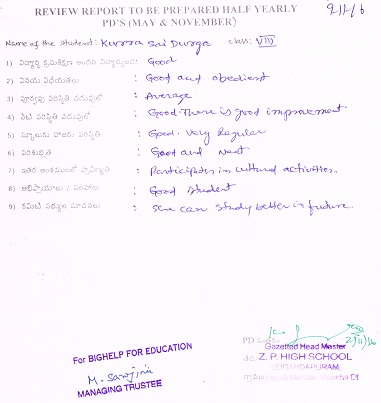 REVIEW REPORT TO BE PREPARED HALF YEARLY
PD'S (MAY & NOVEMBER)
Name of the Student: Kurra Sai Durga class: VIII
1) విద్యార్థి క్రమశిక్షణ : Good
2) వినయ విధేయతలు : Good and obedient
3) పూర్వపు పరిస్థితి చదువులో : Average
4) నేటి పరిస్థితి చదువులో : Good. There is good improvement.
5) స్కూలుకు హాజరు పరిస్థితి : Good. Very Regular
6) పరిశుభ్రత : Good and Neat
7) ఇతర అంశములలో ప్రావీణ్యత : Participates in cultural activities.
8) అభిప్రాయాలు / సలహాలు : Good Student
9) కమిటీ సభ్యుల సూచనలు : She can study better in future.
For BIGHELP FOR EDUCATION
M. Sarojini
MANAGING TRUSTEE
PD
Gazetted Head Master
Z. P. HIGH SCHOOL